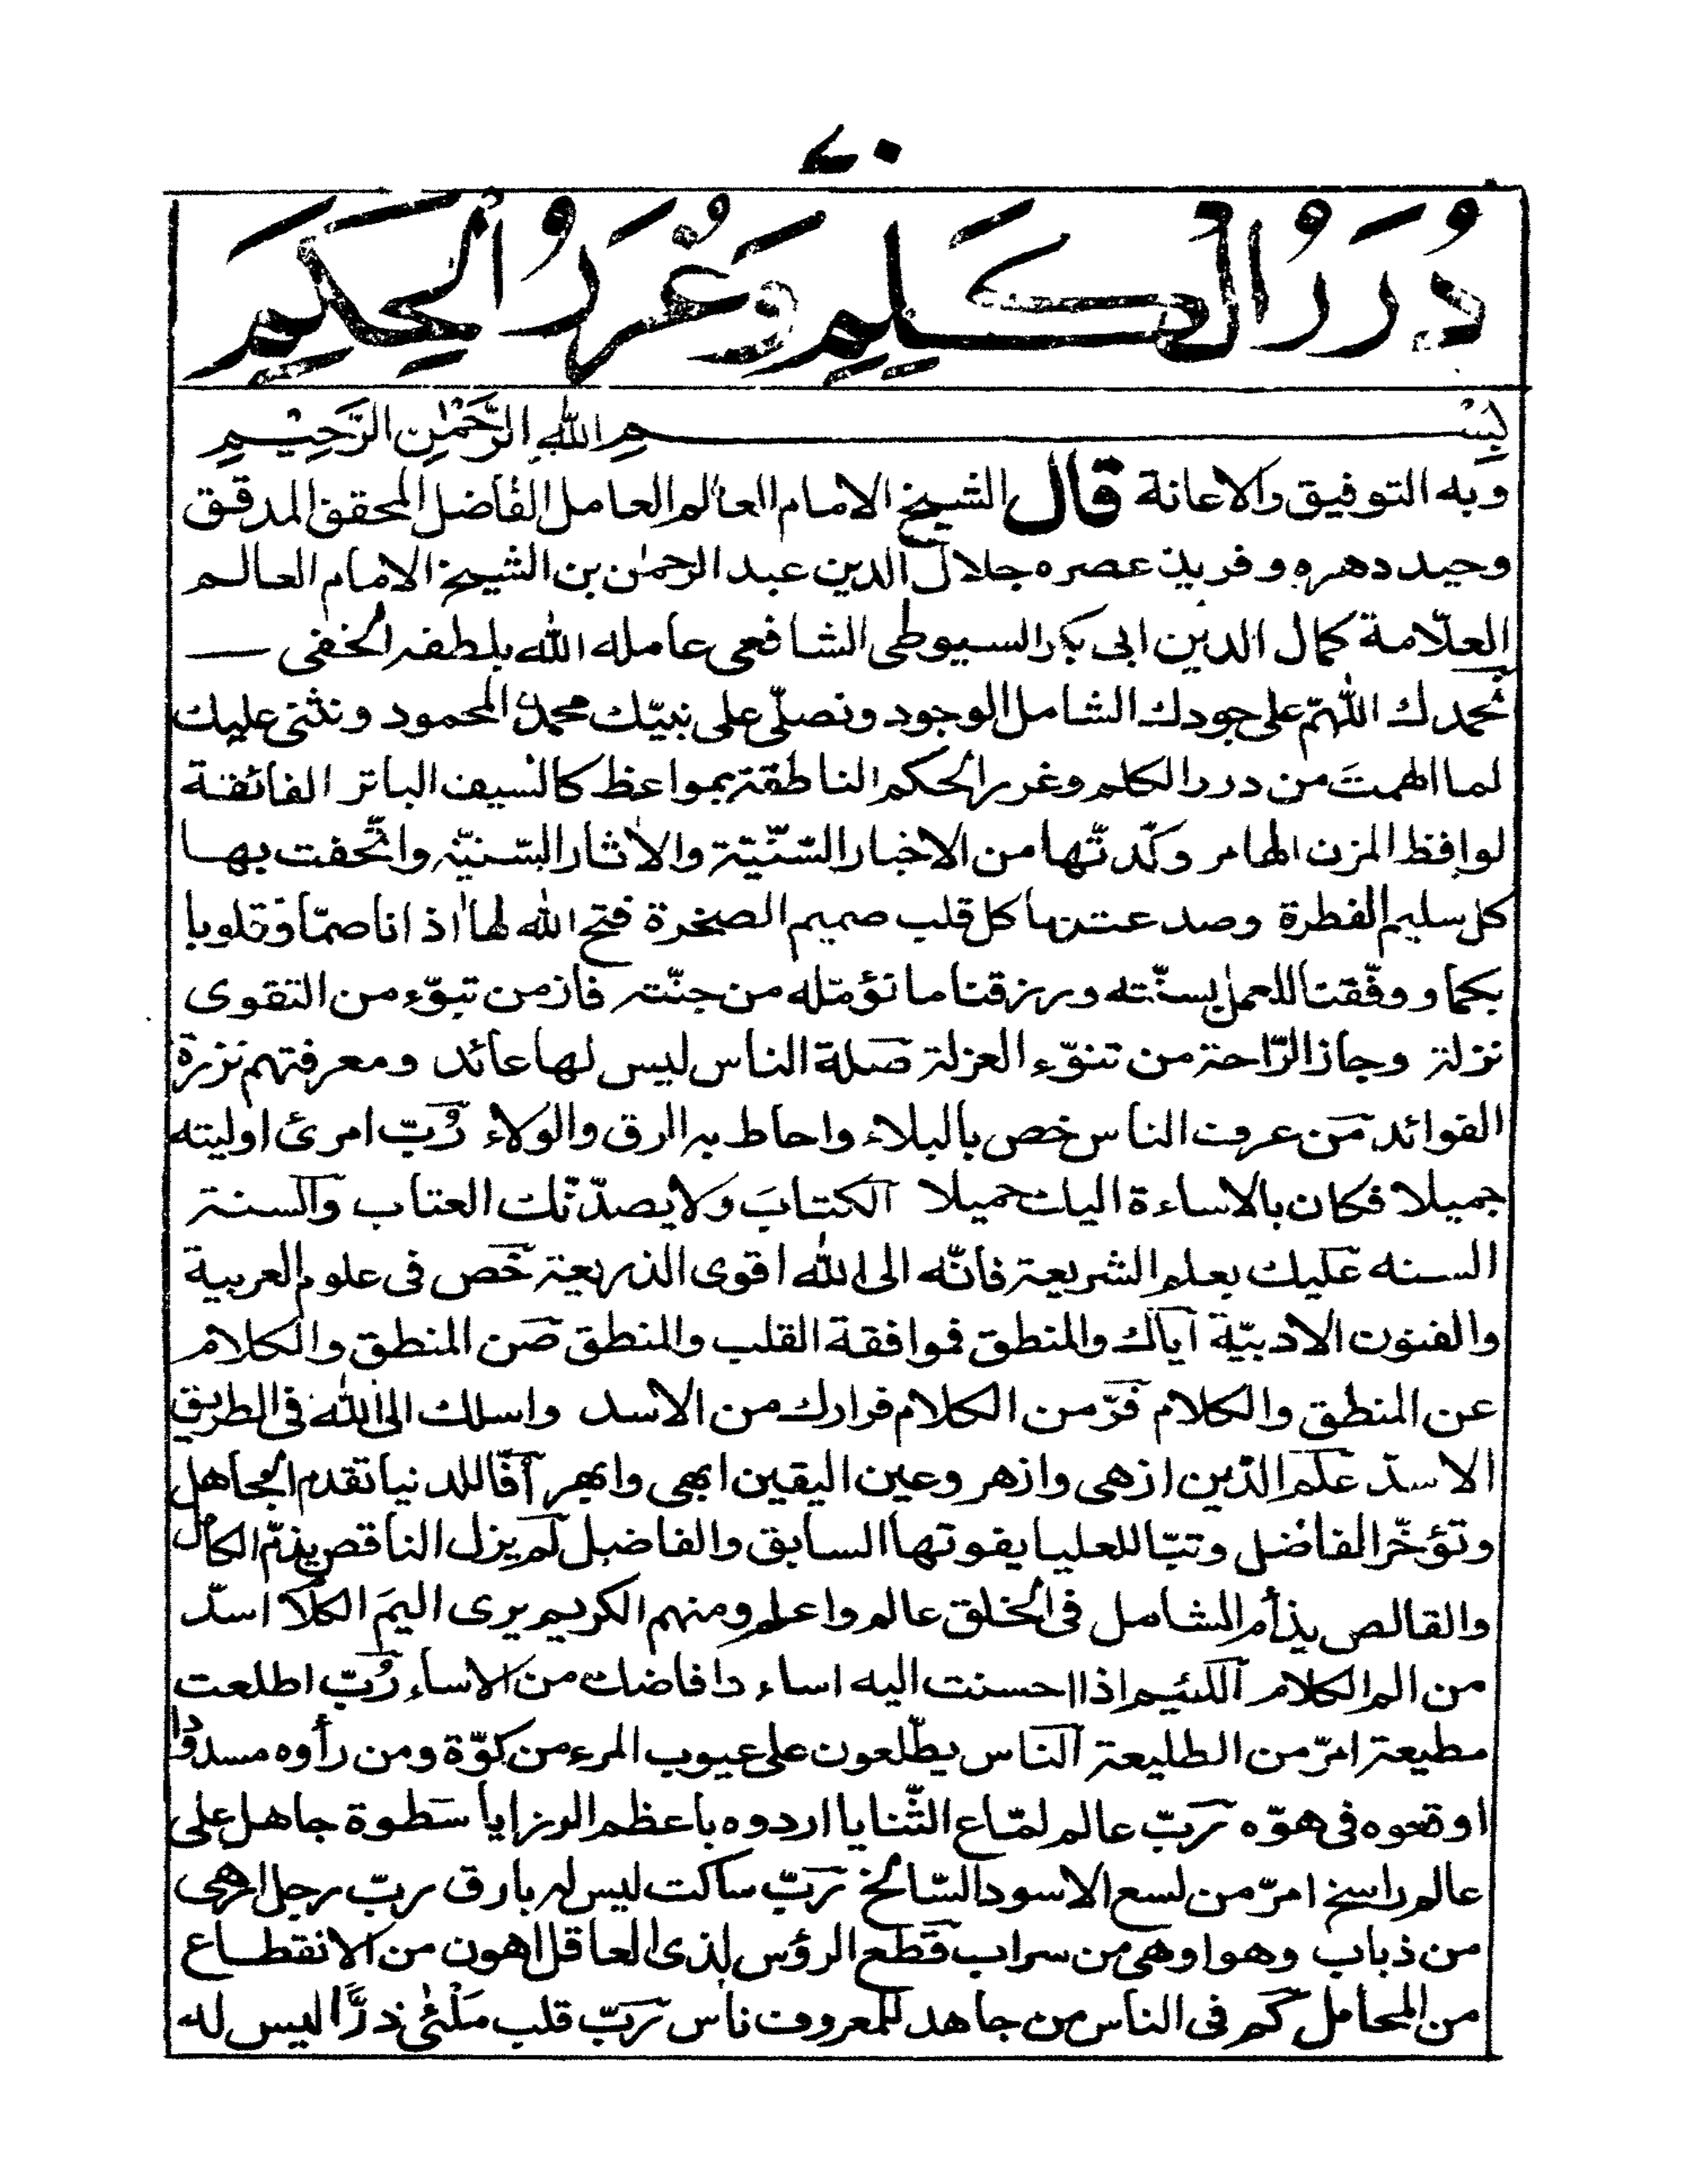 ٤٠
دُرَرُ الْكَلِمِ وَغُرَرُ الْحِكَمِ
بِسْمِ اللهِ الرَّحْمٰنِ الرَّحِيْمِ
وبه التوفيق والاعانة قال الشيخ الامام العالم العامل الفاضل المحقق المدقق
وحيد دهره وفريد عصره جلال الدين عبد الرحمٰن بن الشيخ الامام العالم
العلّامة كمال الدين ابى بكر السيوطى الشافعى عامله الله بلطفه الخفى
نحمدك اللّٰهمّ على جودك الشامل الوجود ونصلّى على نبيّك محمد المحمود ونثنى عليك
لما الهمتَ من درر الكلم وغرر الحكم الناطقة بمواعظ كالسيف الباتر الفائقة
لوافظ المزن الهامر وكّدتّها من الاخبار السّنّيّة والاٰثار السّنيّة واتّحفت بها
كل سليم الفطرة وصدعت بها كل قلب صميم الصخرة فتح الله لها اٰذانا صمّا وقلوبا
بكما ووفّقنا للعمل بسنّته ورزقنا ما نؤمّله من جنّته فاز من تبوّء من التقوى
نزلة وجاز الرّاحة من تنوّء العزلة صلة الناس ليس لها عائد ومعرفتهم نزرة
الفوائد من عرف الناس خص بالبلاء واحاط به الرق والولاء رُبّ امرئ اوليته
جميلا فكان بالاساءة اليك حميلا الكتابَ ولا يصدّنّك العتاب والسنة
السنه عليك بعلم الشريعة فانّه الى الله اقوى الذريعة خص فى علوم العربية
والفنون الادبيّة اياك والمنطق فموافقة القلب والمنطق صن المنطق والكلام
عن المنطق والكلام فرّ من الكلام فرارك من الاسد واسلك الى الله فى الطريق
الاسدّ علم الدّين ازهى وازهر وعين اليقين ابهى وابهر اُفّا للدنيا تقدم الجاهل
وتؤخّر الفاضل وتبّا للعليا يفوتها السابق والفاضل لم يزل الناقص يذمّ الكامل
والقالص يذأم الشامل فى الخلق عالم واعلم ومنهم الكريم يرى اليمَ الكلا اسدّ
من الم الكلام اللئيم اذا احسنت اليه اساء دافاضك من الاساء رُبّ اطلعت
مطيعة امرّ من الطليعة الناس يطّلعون على عيوب المرء من كوّة ومن رأوه مسددا
اوقعوه فى هوّه رَبّ عالم لمّاع الثّنايا اردوه باعظم الرزايا سطوة جاهل على
عالم راسخ امرّ من لسع الاسود السّالخ رَبّ ساكت ليس له بارق ربّ رجل ازهى
من ذباب وهو اوهى من سراب قطع الرؤس لذى العاقل اهون من الانقطاع
من المحامل كم فى الناس من جاهد للمعروف ناس رَبّ قلب ليس له